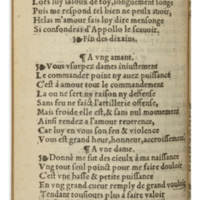 Lors luy ialoux de toy, longuement songe
Puis me respond rei bien ne peulx auoir,
Helas m'amour fais luy dire mensonge
Si confondras d'Appollo le sçauoir.
Fin des dixains.
¶ A vng amant.
Vous vsurpez dames iniustement
Le commandet point ny auez puissance
C'est à amour tout le commandement
La on ne sert ny raison ny deffense
Sans feu ne faict larriere offense
Mais froide elle est, & sans nul mouuement
Ainsi rendez à l'amour reuerence,
Car luy en vous son feu & violence
Vous est grand heur, honneur, accroissement.
¶ A vne dame.
Donné me fut des cieulx à ma naissance
Vng tout seul poinct pour me faire douloir
C'est vne basse & petite puissance
En vng grand cueur remply de grand vouloir
Tendant tousiours plus à faire valoir